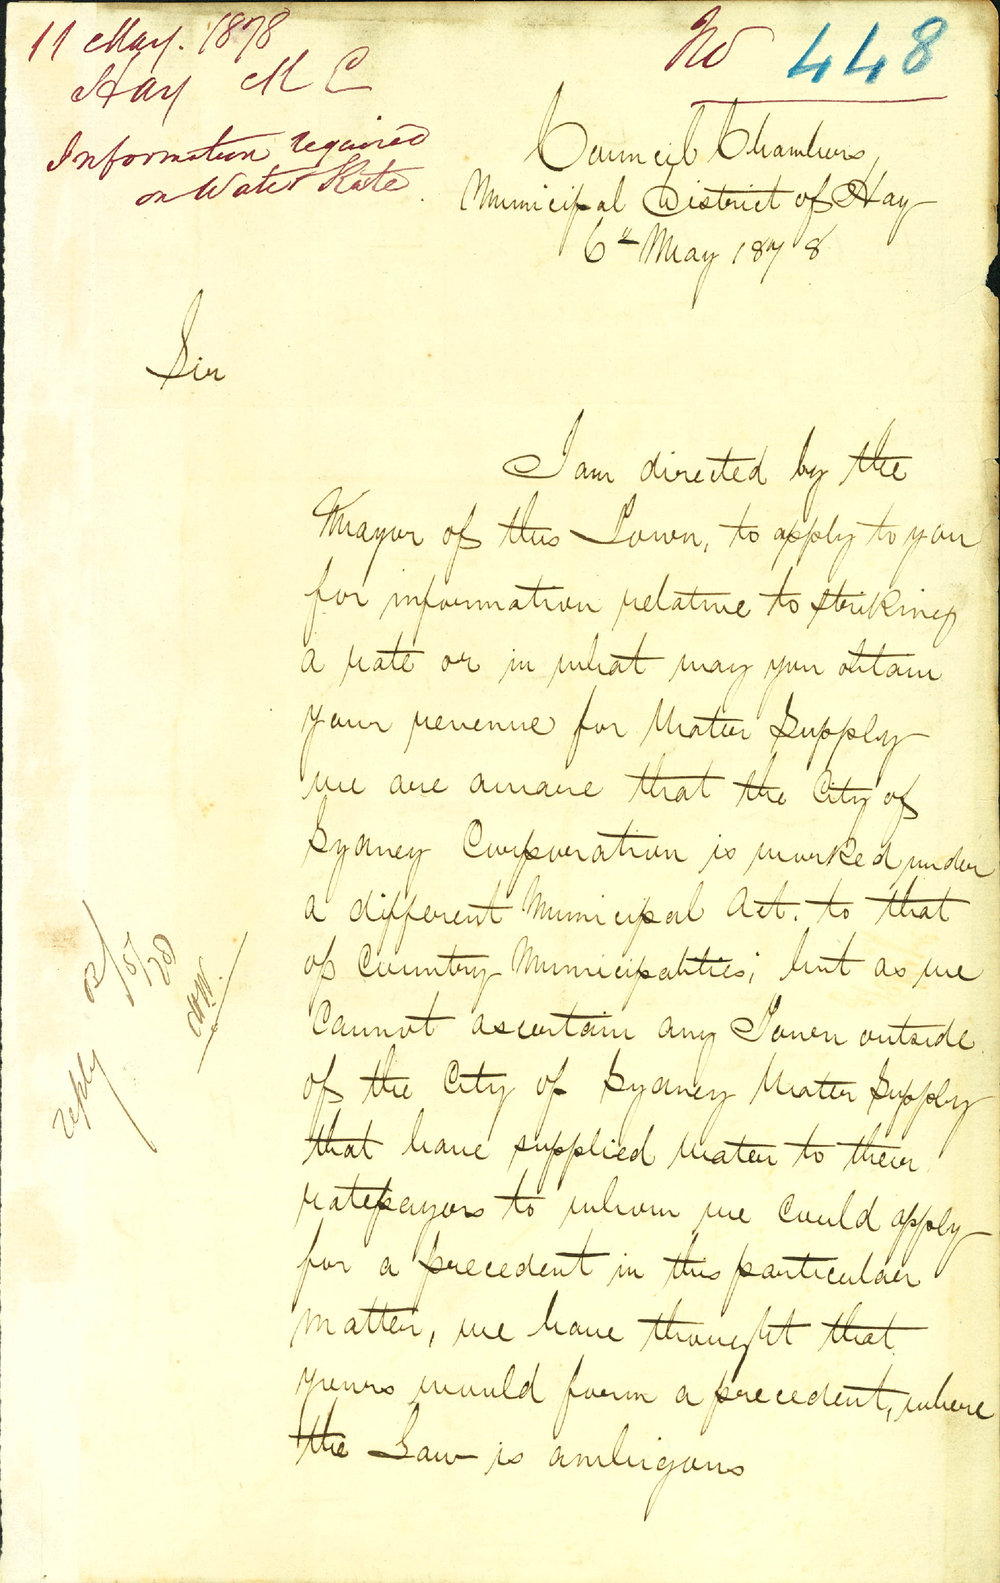 11 May. 1878
Hay M C
Information required
on Water Rate.
No 448
Council Chambers,
Municipal District of Hay
6th May 1878
Sir
I am directed by the
Mayor of this Town, to apply to you
for information relative to striking
a rate or in what way you obtain
your revenue for Water Supply
we are aware that the City of
Sydney Corporation is worked under
a different Municipal Act. to that
of Country Municipalities; but as we
Cannot ascertain any Town outside
of the City of Sydney Water Supply
that have supplied water to their
ratepayers to whom we could apply
for a precedent in this particular
matter, we have thought that
yours would form a precedent, where
the Law is ambigous
reply